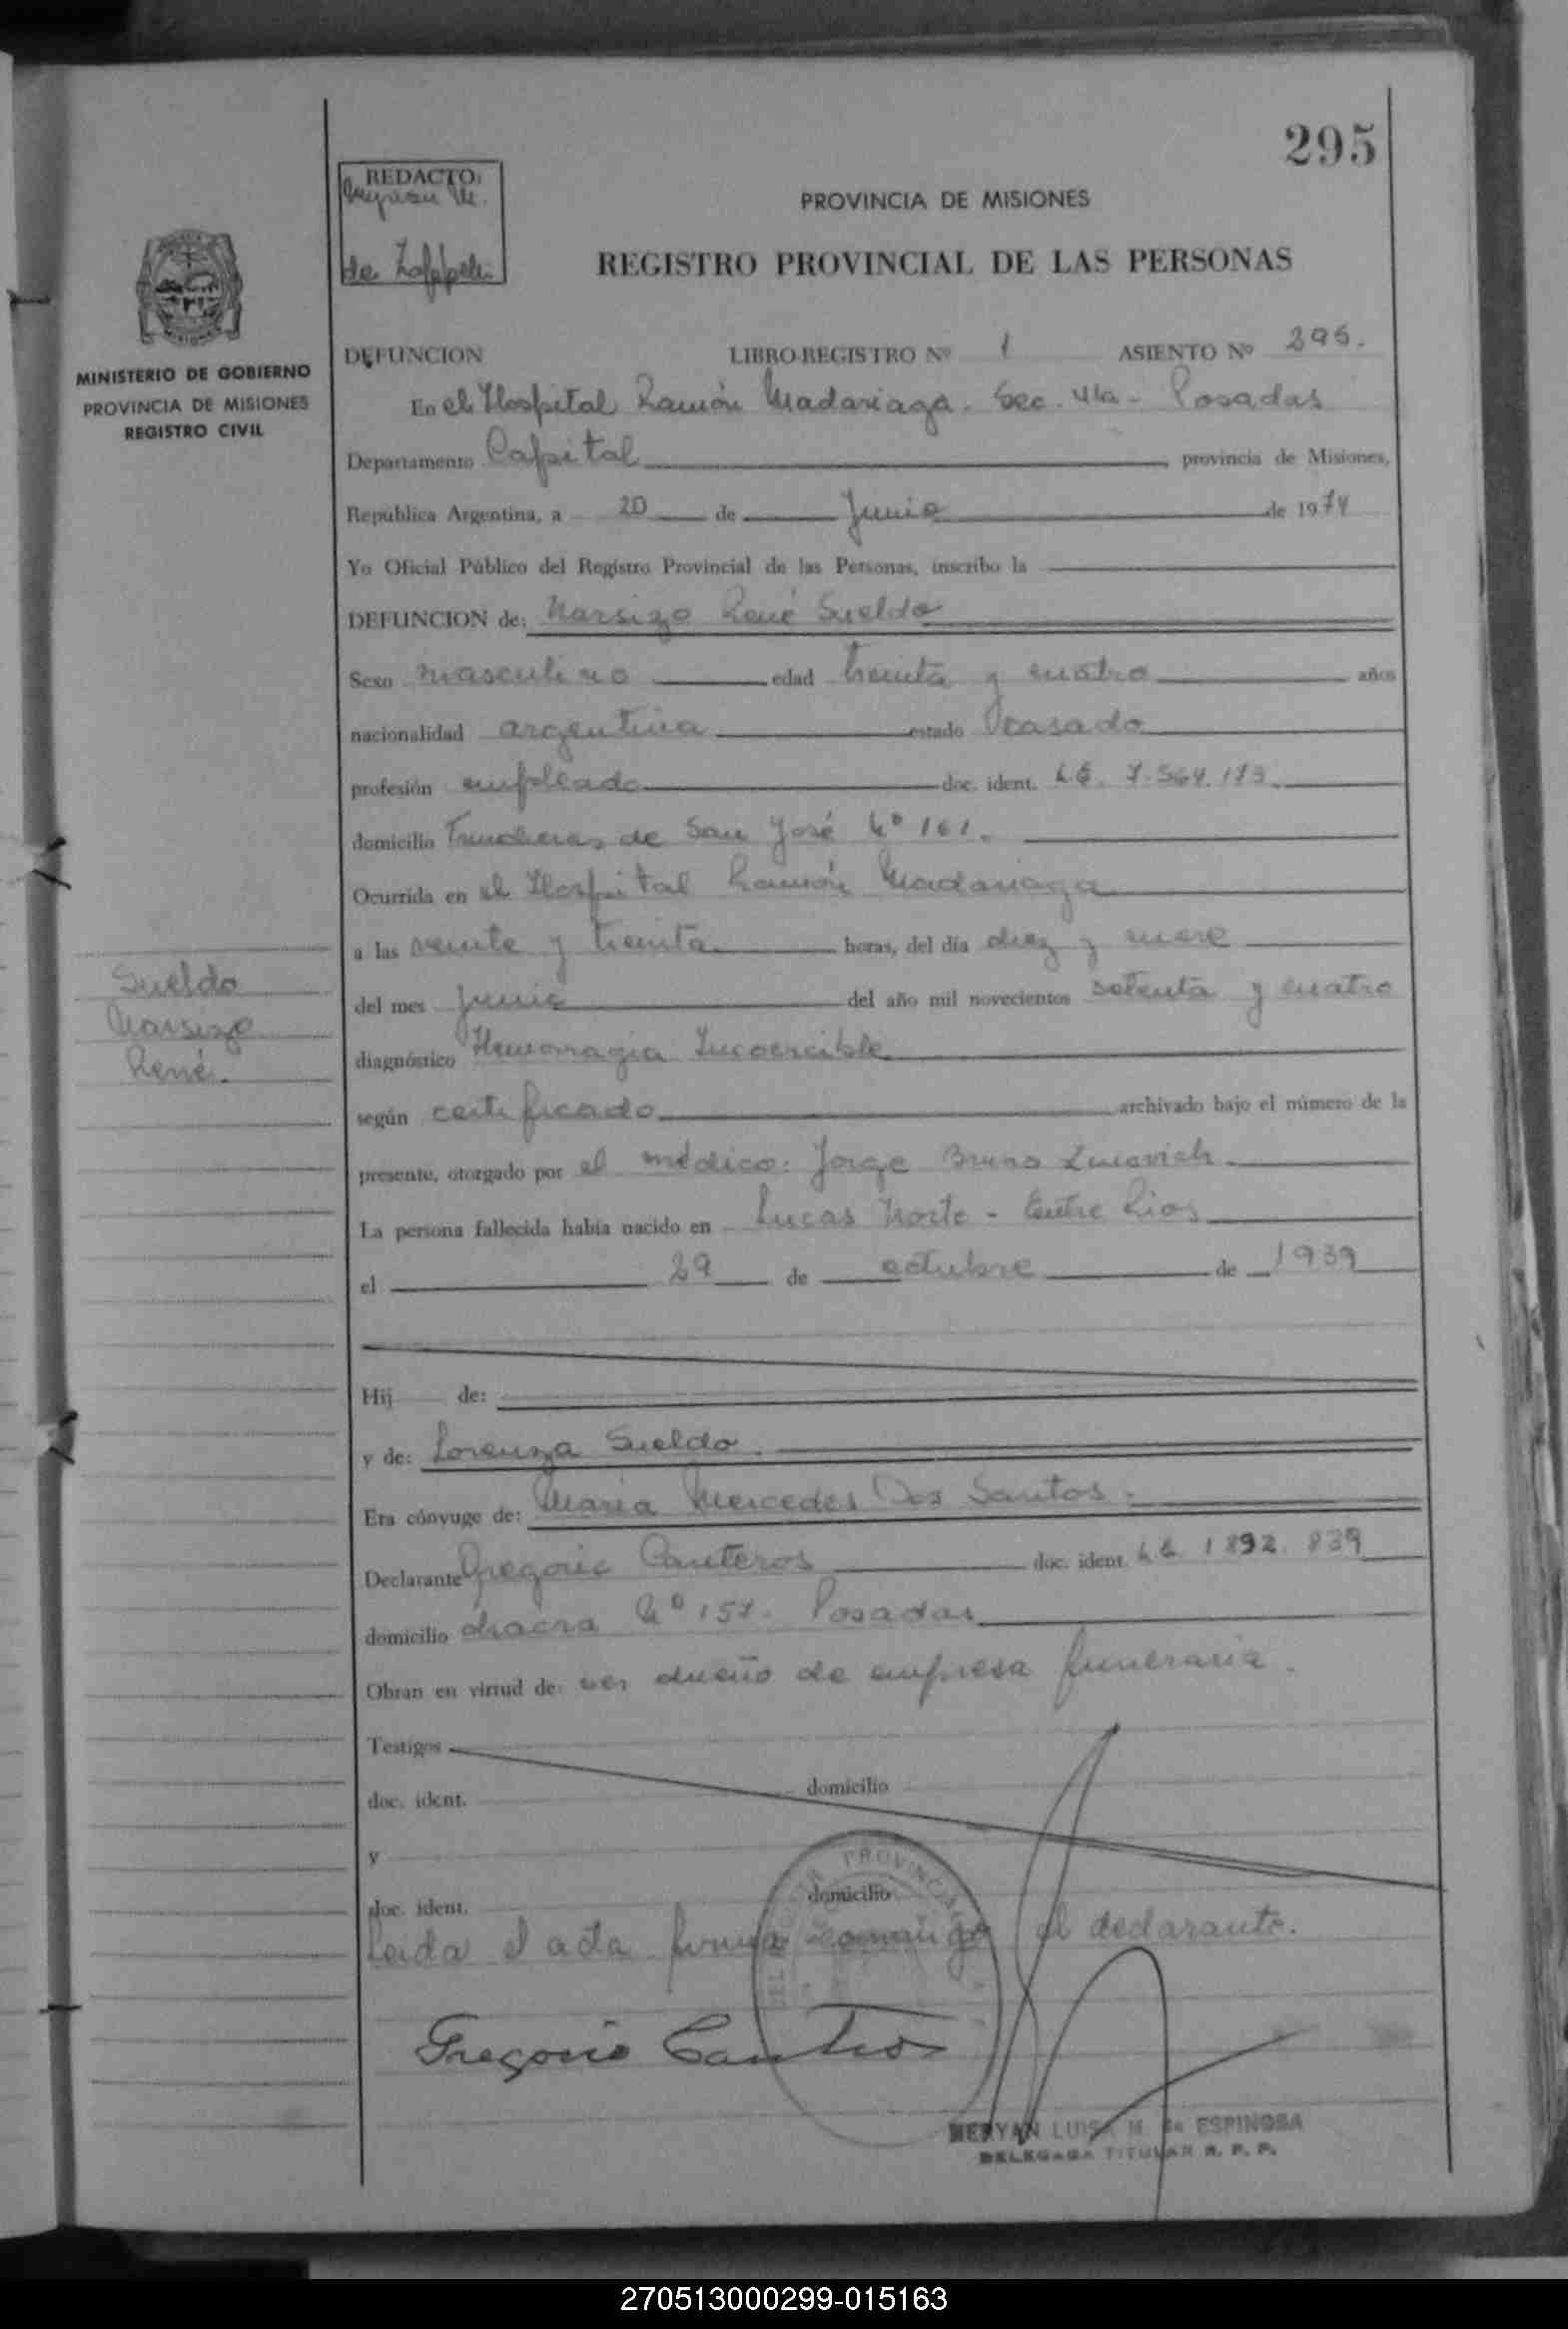 295
REDACTO:
Meryan M.
de Zappelli
PROVINCIA DE MISIONES
REGISTRO PROVINCIAL DE LAS PERSONAS
MINISTERIO DE GOBIERNO
PROVINCIA DE MISIONES
REGISTRO CIVIL
DEFUNCION LIBRO-REGISTRO Nº 1 ASIENTO Nº 295.
En el Hospital Ramón Madariaga. Sec. 4ta - Posadas
Departamento Capital provincia de Misiones,
República Argentina, a 20 de Junio de 1974
Yo Oficial Público del Registro Provincial de las Personas, inscribo la
DEFUNCION de: Narsizo René Sueldo
Sexo masculino edad treinta y cuatro años
nacionalidad argentina estado casado
profesión empleado doc. ident. L.E. 7.564.173
domicilio Trincheras de San José Nº 161.
Ocurrida en el Hospital Ramón Madariaga
a las veinte y treinta horas, del día diez y nueve
del mes junio del año mil novecientos setenta y cuatro
Sueldo
Narsizo
René.
diagnóstico Hemorragia Incoercible
según certificado archivado bajo el número de la
presente, otorgado por el médico: Jorge Bruno Lucovich
La persona fallecida había nacido en Lucas Norte - Entre Rios
el 29 de octubre de 1939
Hij de:
y de: Lorenza Sueldo.
Era cónyuge de: María Mercedes Dos Santos.
Declarante Gregorio Canteros doc. ident. L.E. 1892.839
domicilio chacra Nº 157. Posadas
Obran en virtud de: ser dueño de empresa funeraria.
Testigos
doc. ident. domicilio
y
doc. ident. domicilio
Leida el acta firma conmigo el declarante.
Gregorio Canteros
PROVINCIAL
MERYAN LUISA M. de ESPINOSA
DELEGADA TITULAR R. P. P.
270513000299-015163